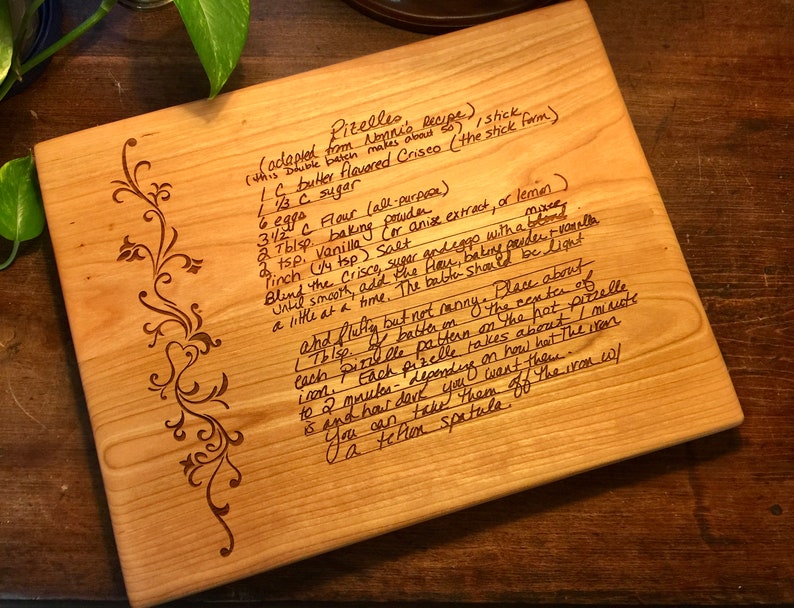 Pizelles
(adapted from Nonni's Recipe)
(this Double batch makes about 50) 1 stick
1 C butter flavored Crisco (the stick form)
1 1/3 C sugar
6 eggs
3 1/2 C Flour (all-purpose)
2 Tblsp. baking powder
2 tsp. Vanilla (or anise extract, or lemon)
Pinch (1/4 tsp) Salt mixer
Blend the Crisco, sugar and eggs with a blend
until smooth, add the flour, baking powder + vanilla
a little at a time. The batter should be light
and fluffy but not runny. Place about
1 Tblsp. of batter on the center of
each pizelle pattern on the hot pizzelle
iron. Each pizelle takes about 1 minute
to 2 minutes - depending on how hot the iron
is and how dark you want them.
You can take them off the iron w/
a teflon spatula.